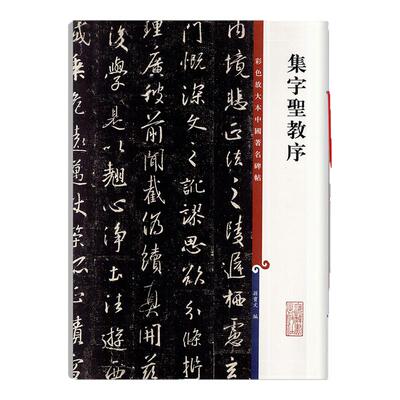 集字聖教序
彩色放大本中國著名碑帖
孫寶文 編
内境悲正法之陵遲栖慮玄
門慨深文之訛謬思欲分條析
理廣彼前聞截偽續真開茲
後學是以翹心淨土法遊西
域乘危遠邁杖策孤征